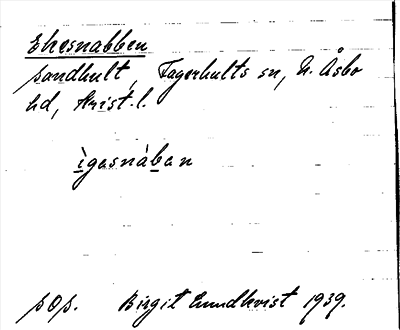 Ekesnabben
Sandhult, Fagerhults sn, N. Åsbo
hd, Krist. l.
ìgesnàban
sOs. Birgit Lundkvist 1939.